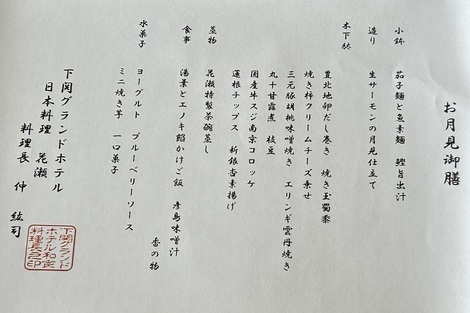 お月見御膳
小鉢 茄子麺と魚素麺 鰹旨出汁
造り 生サーモンの月見仕立て
木下駄
豊北地卵だし巻き 焼き玉蜀黍
焼き柿クリームチーズ乗せ
三元豚胡桃味噌焼き エリンギ雲丹焼き
丸十甘露煮 枝豆
国産牛スジ南京コロッケ
蓮根チップス 新銀杏素揚げ
蒸物 花瀬特製茶碗蒸し
食事 湯葉とエノキ餡かけご飯 彦島味噌汁
香の物
水菓子 ヨーグルト ブルーベリーソース
ミニ焼き芋 一口菓子
下関グランドホテル
日本料理 花瀬
料理長 仲 紘司
下関グランド
ホテル和食
料理長之印